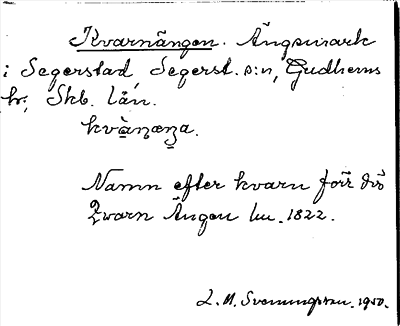 Kvarnängen. Ängsmark
i Segerstad, Segerst. s:n, Gudhems
hr; Skb. län.
kvà̱ṇæṇa.
Namn efter kvarn förr där
Qwarn Ängen lm. 1822.
L. M. Svenungsson. 1950.